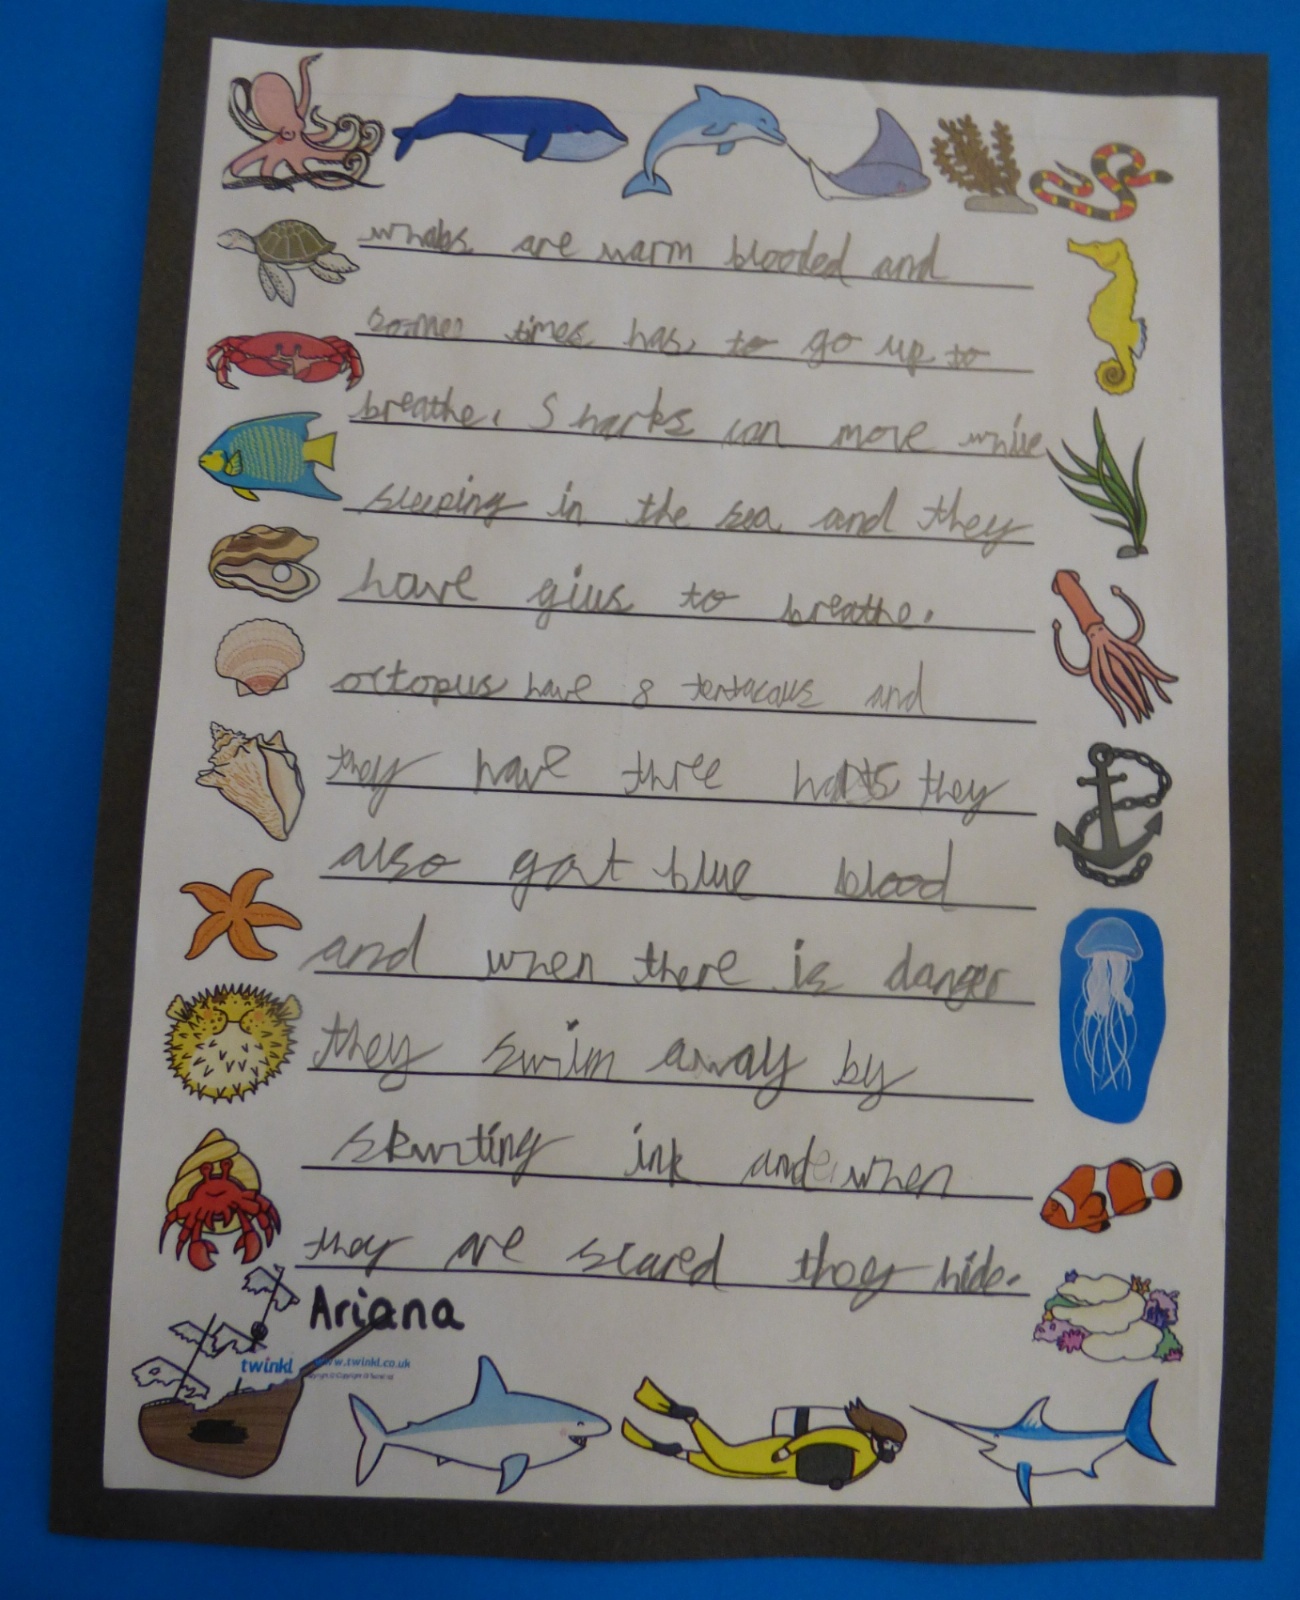 whals are warm blooded and
somes times has to go up to
breathe. Sharks can move while
sleeping in the sea and they
have gius to breathe.
octopus have 8 tentacous and
they have three harts they
also got blue blood
and when there is danger
they swim away by
skwting ink and when
they are scared they hide.
Ariana
twinkl www.twinkl.co.uk